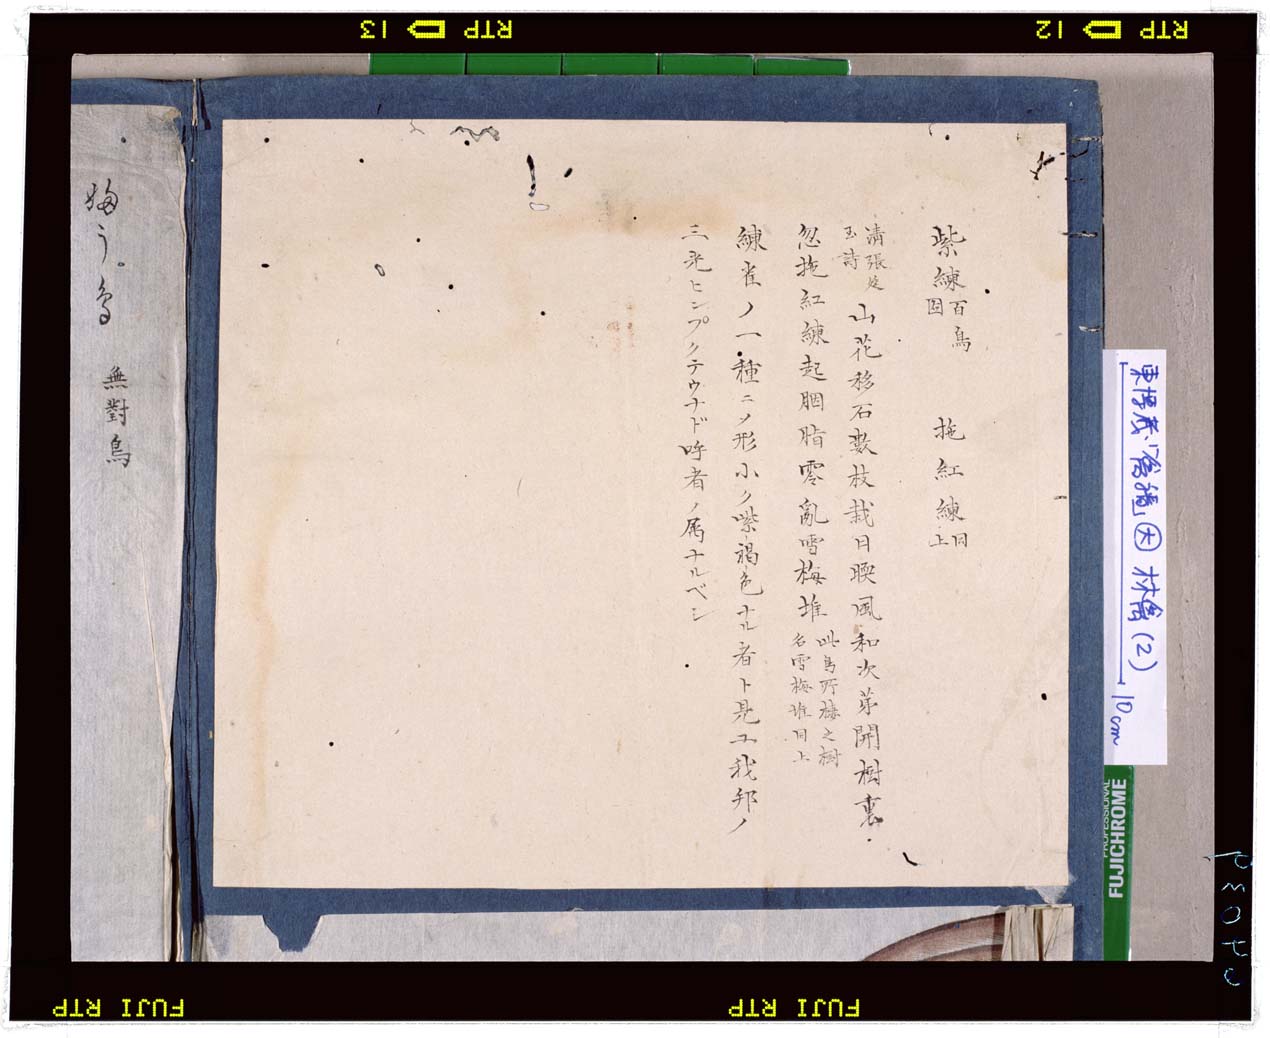 紫練百鳥圖 拖紅練同上
清張廷玉詩 山花移石數枝栽日暖風和次第開樹裏
忽拖紅練起胭脂零亂雪梅堆此鳥所棲之樹名雪梅堆同上
練雀ノ一種ニメ形小ク紫褐色ナル者ト見ユ我邦ノ
三光ヒンプクテウナド呼者ノ属ナルベシ
無對鳥
東博蔵「禽譜」 林禽(2)
10cm
RTP 13
RTP 12
FUJI RTP
FUJI RTP
PROFESSIONAL
FUJICHROME